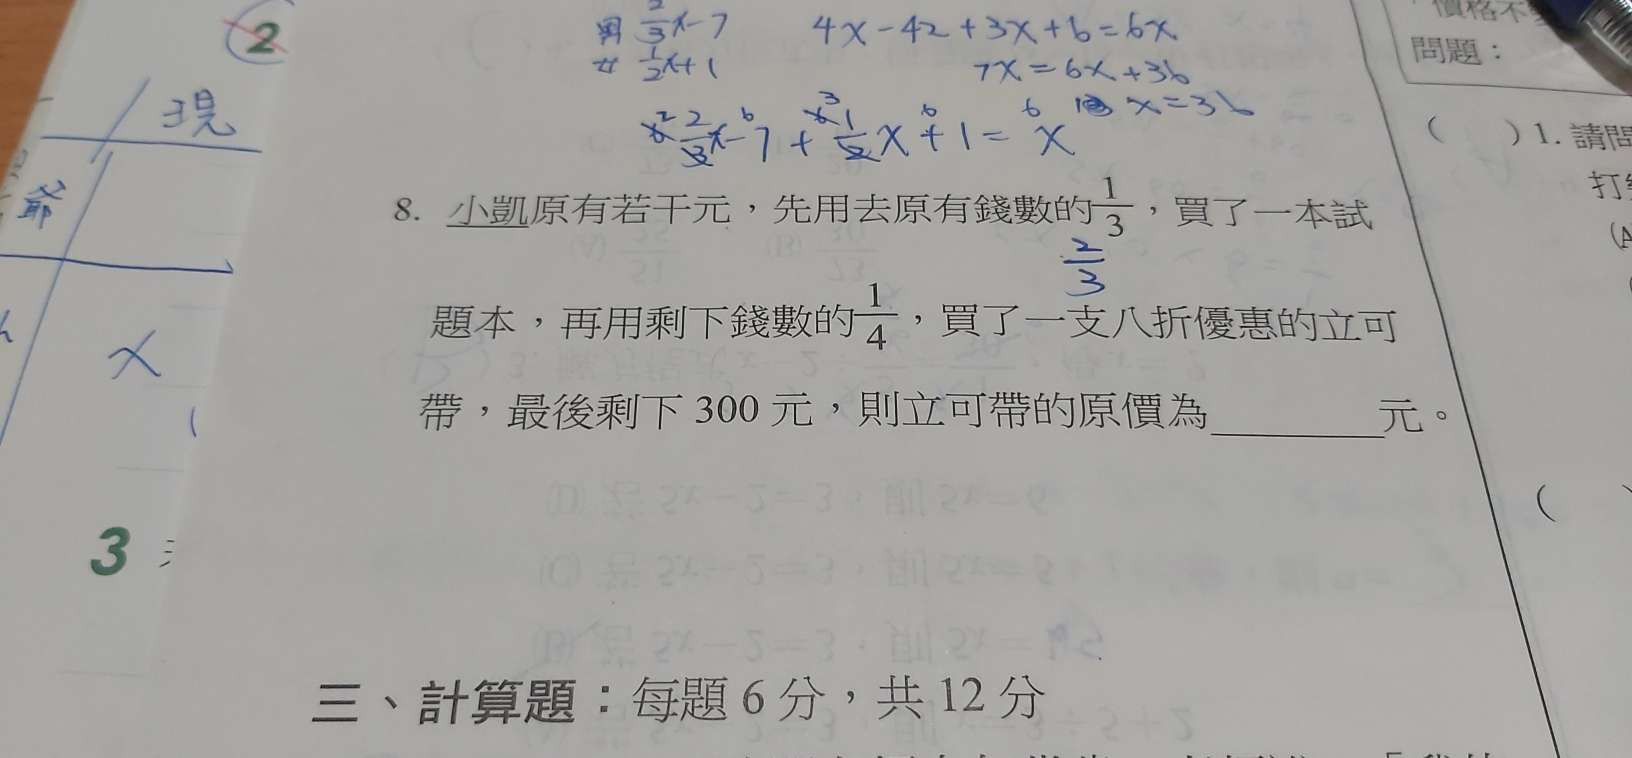 2
男 2/3x-7
4x-42+3x+6=6x
女 1/2x+1
7x=6x+36
x=36
2/3x-7+1/2x+1=x
現
爺
x
3
問題：
( )1. 請問
打
(A
8. 小凱原有若干元，先用去原有錢數的1/3，買了一本試
2/3
題本，再用剩下錢數的1/4，買了一支八折優惠的立可
帶，最後剩下 300 元，則立可帶的原價為______元。
(
三、計算題：每題 6 分，共 12 分